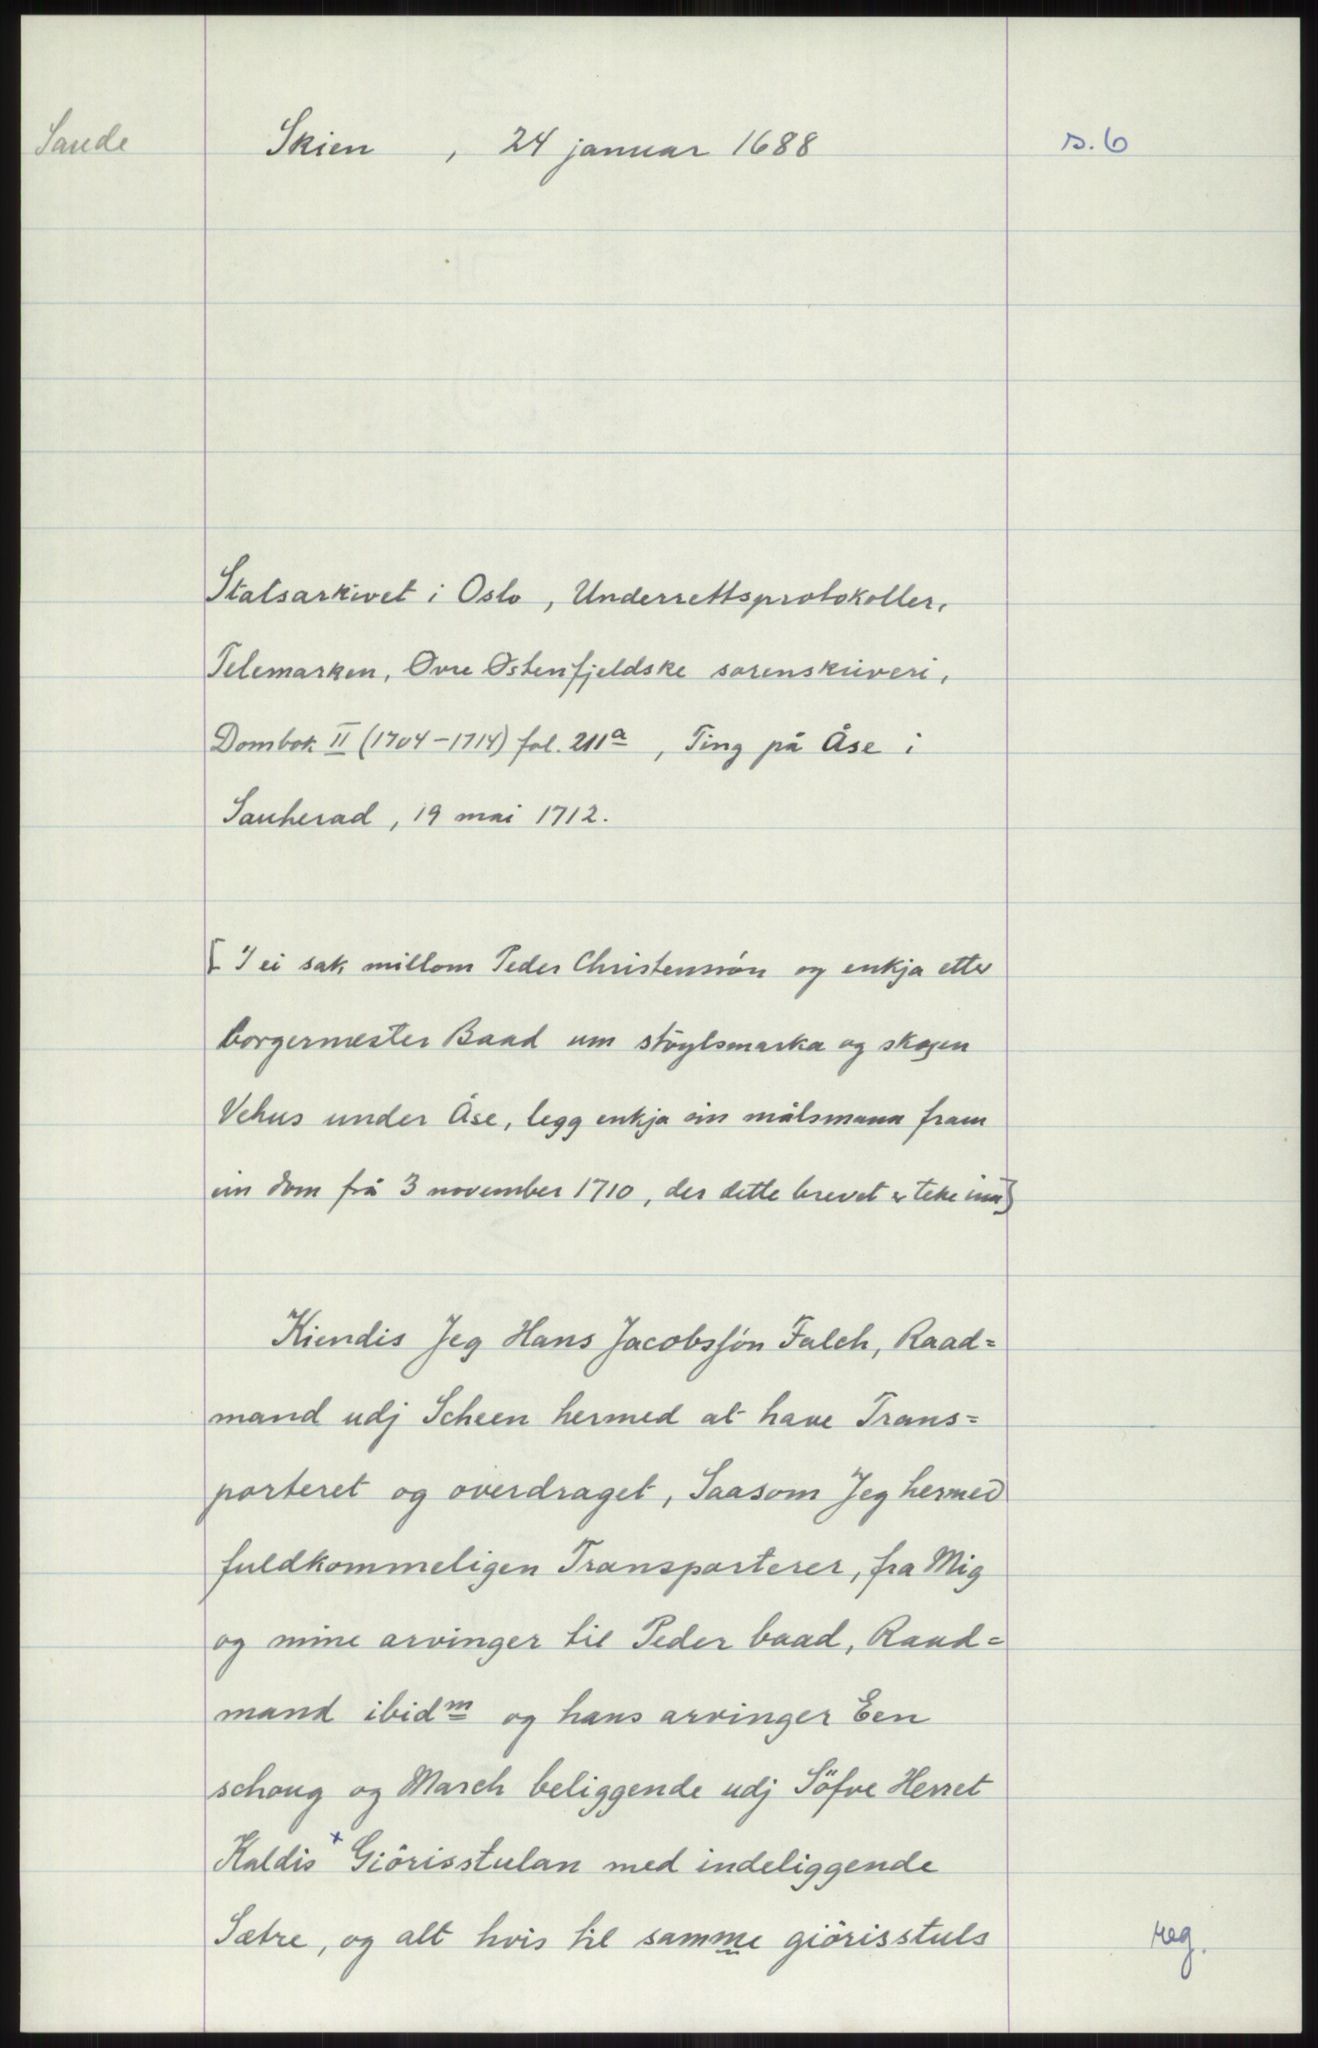 Saude
Skien , 24 januar 1688
s. 6
Statsarkivet i Oslo, Underrettsprotokoller,
Telemarken, Øvre Østenfjeldske sorenskriveri,
Dombok II (1704-1714) fol. 211a , Ting på Åse i
Sauherad, 19 mai 1712.
[ I ei sak millom Peder Christenssön og enkja etter
borgermester Baad um stöylsmarka og skogen
Vehus under Åse, legg enkja sin målsmann fram
ein dom frå 3 november 1710, der dette brevet er teke inn]
Kiendis Jeg Hans Jacobsſön Falch, Raad=
mand udj Scheen hermed at have Trans=
porteret og overdraget, Saasom Jeg hermed
fuldkommeligen Transporterer, fra Mig
og mine arvinger til Peder baad, Raad=
mand ibidm og hans arvinger Een
schoug og March beliggende udj Söfve Herret
Kaldis + Giörisstulan med indeliggende
Sætre, og alt hvis til samme giörisstuls
reg.